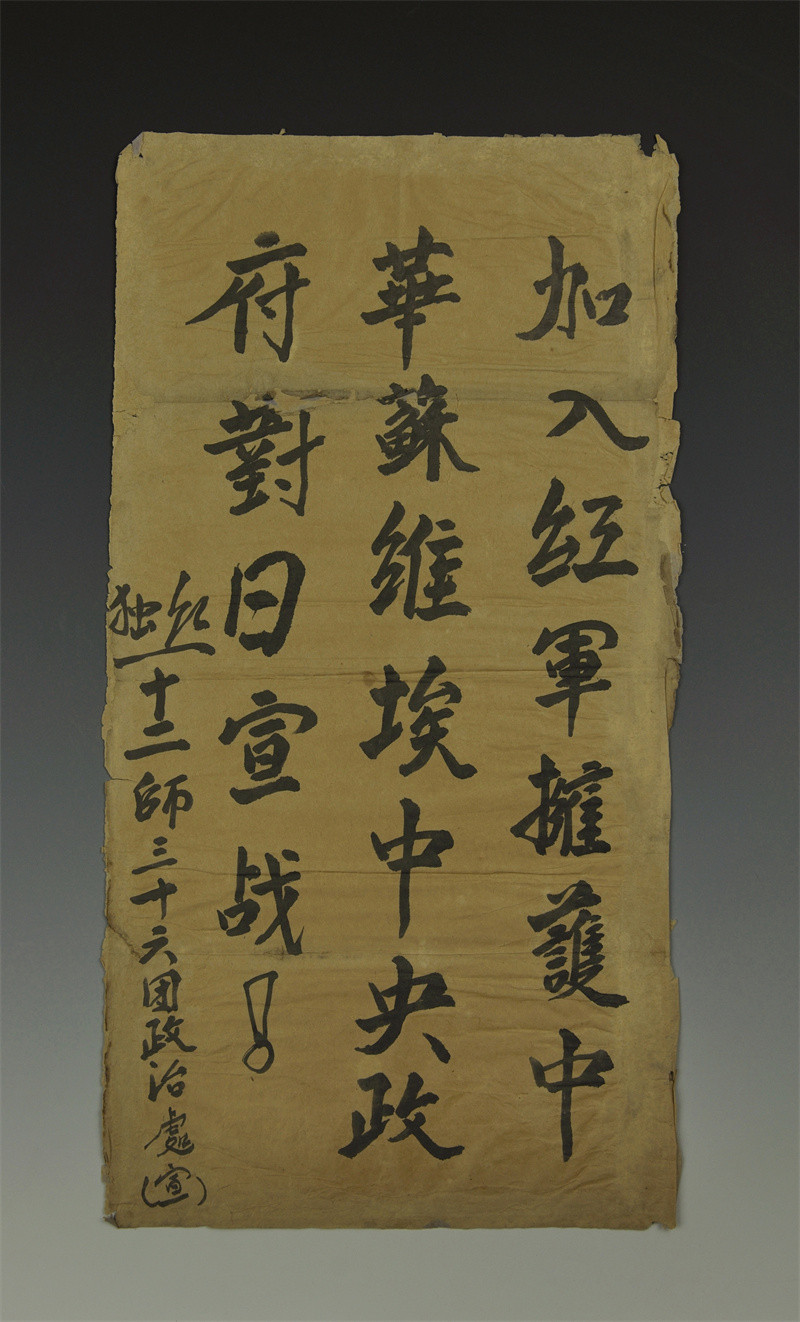 加入红軍擁護中
華蘇維埃中央政
府對日宣战！
红独
十二師三十六团政治處(宣)